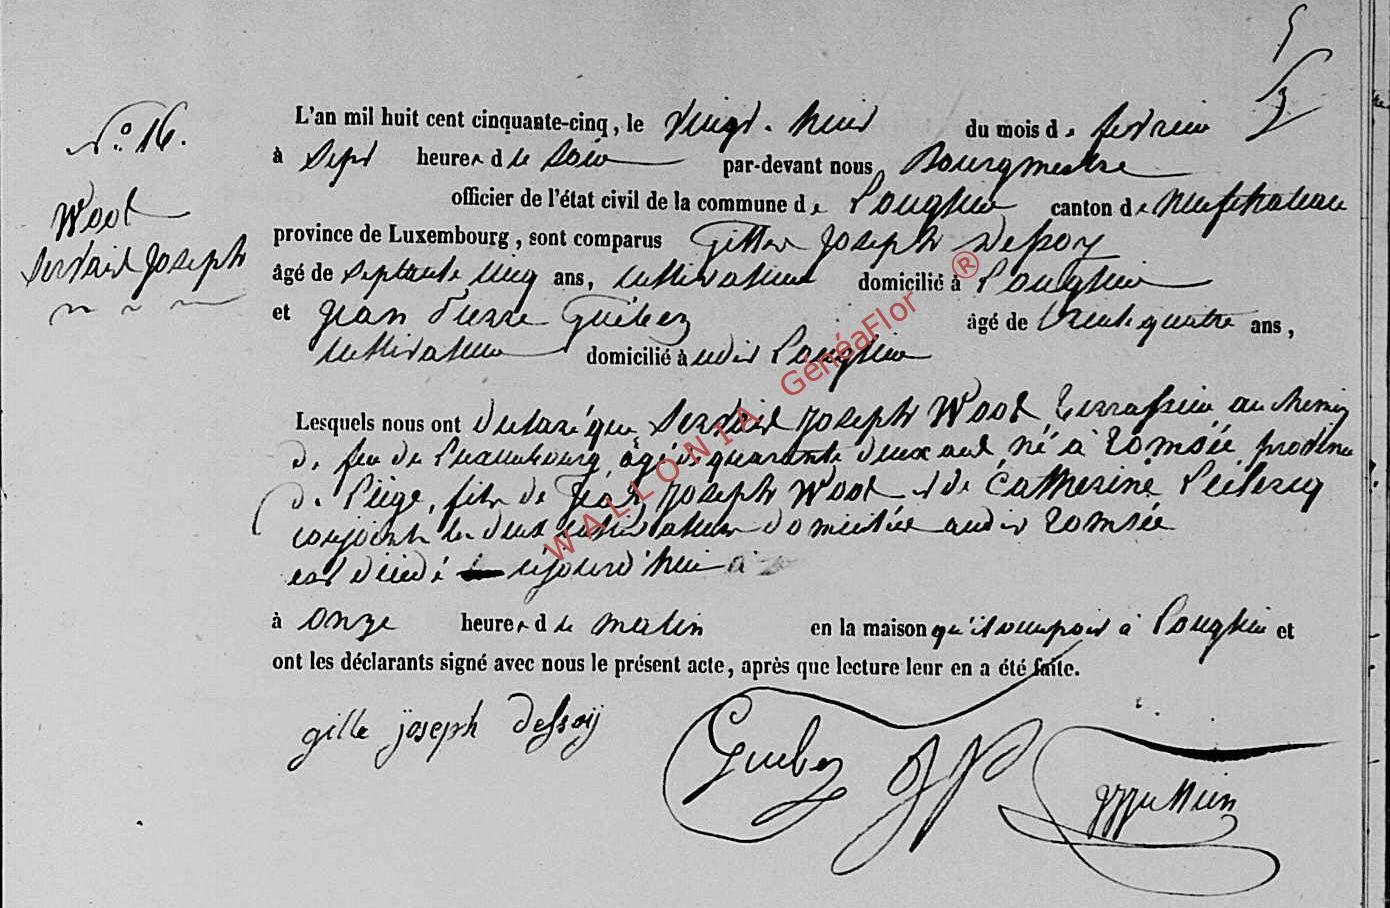 N.° 16.
Woot
Servais Joseph
L'an mil huit cent cinquante-cinq, le vingt-huit du mois de fevrier
à Sept heures du Soir par-devant nous Bourgmestre
officier de l'état civil de la commune de Longlier canton de Neufchateau
province de Luxembourg, sont comparus Gilles Joseph Dessoy
âgé de septante cinq ans, cultivateur domicilié à Longlier
et Jean Pierre Guébez âgé de trente quatre ans,
cultivateur domicilié à udit Longlier
Lesquels nous ont déclaré que Servais Joseph Woot, terrassier au chemin
de feu de Luxembourg, âgé de quarante deux ans, né à Romsée province
de Liège, fils de Jean Joseph Woot et de Catherine Leclercq
conjoints les deux cultivateurs domiciliés audit Romsée
est décédé aujourd'hui à
à onze heures du matin en la maison qu'il occupait à Longlier et
ont les déclarants signé avec nous le présent acte, après que lecture leur en a été faite.
gille joseph dessoÿ
Guebez J P
WALLONIA GénéaFlor ®